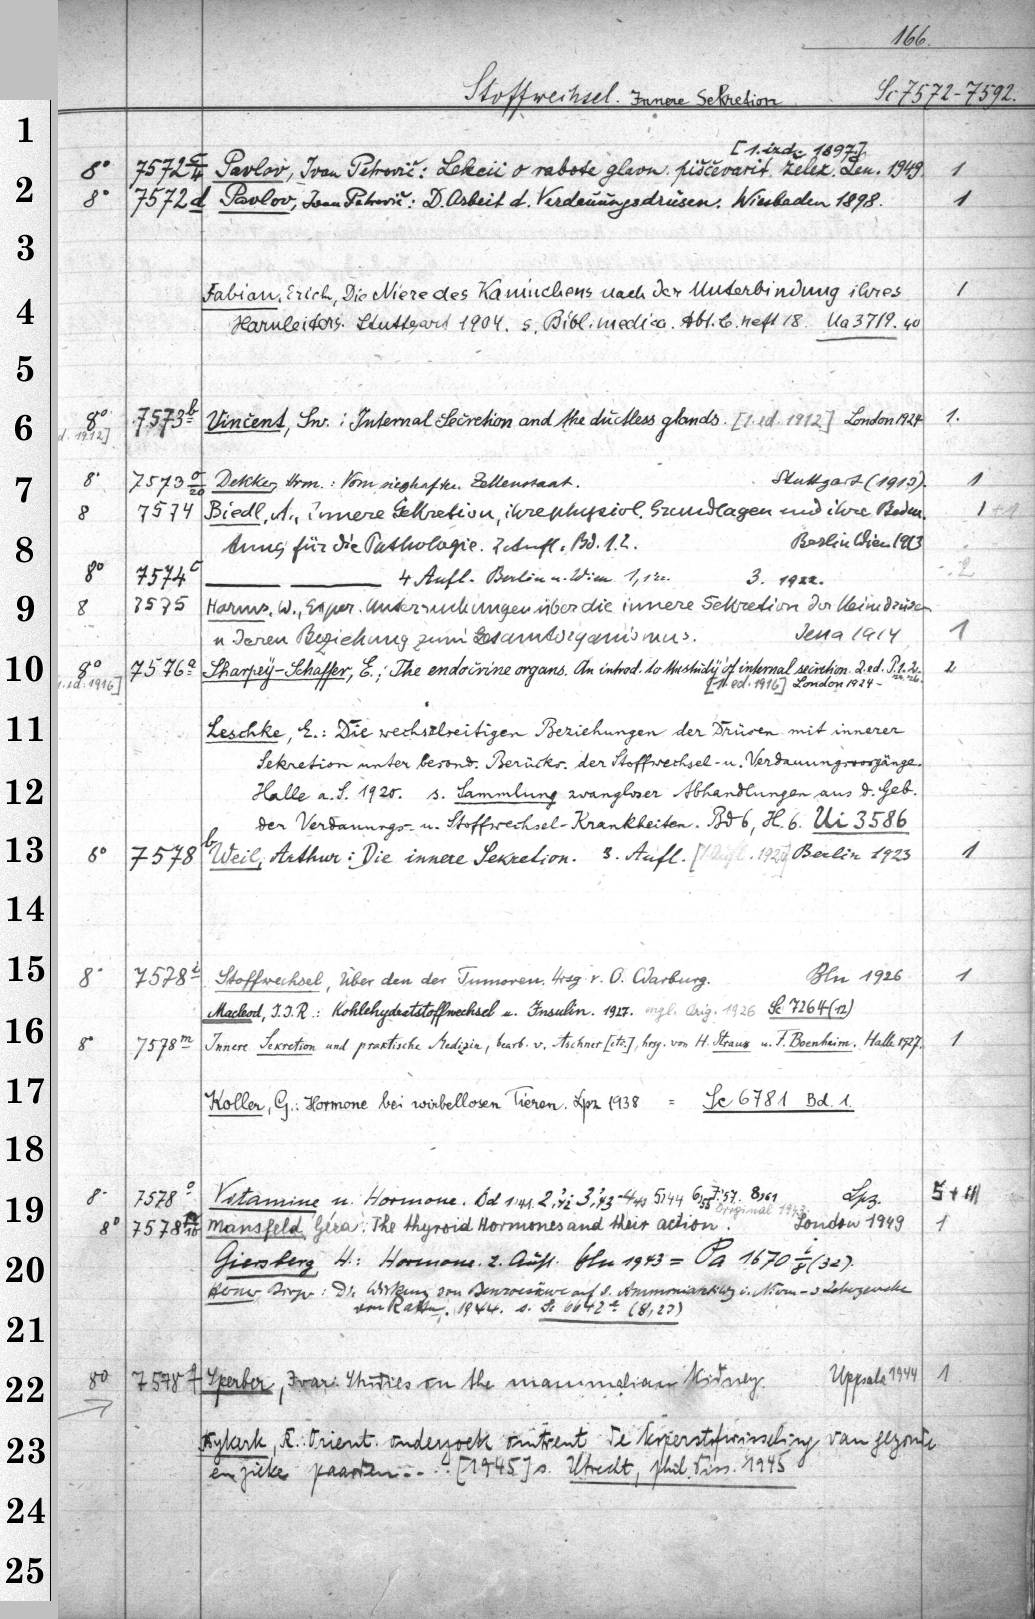 166.
Stoffwechsel. Innere Sekretion Sc 7572-7592.
1
[1. izd. 1897].
8° 7572 c/4 Pavlov, Ivan Petrovič: Lekcii o rabote glavn. piščevarit. želez. Len. 1949 1
2
8° 7572 d Pavlov, Ivan Petrovič: D. Arbeit d. Verdauungsdrüsen. Wiesbaden 1898. 1
3
Fabian, Erich, Die Niere des Kaninchens nach der Unterbindung ihres 1
4
Harnleiters. Stuttgart 1904. s. Bibl. medica. Abt. C. Heft 18. Ua 3719. 40
5
8° 7573 b Vincent, Sw.: Internal Secretion and the ductless glands. [1. ed. 1912] London 1924 1.
6
d. 1912]
7
8° 7573 /20 Dekker, Hrm.: Vom sieghaften Zellenstaat. Stuttgart (1913). 1
8 7574 Biedl, A., Innere Sekretion, ihre physiol. Grundlagen und ihre Bedeu. 1 + 1
8
tung für die Pathologie. 2. Aufl. Bd. 1.2. Berlin Wien 1913
8° 7574 c 4. Aufl. Berlin u. Wien 1, 3. 1922. 2
9
8 7575 Harms, W., Exper. Untersuchungen über die innere Sekretion der Keimdrüsen
u. deren Beziehung zum Gesamtorganismus. Jena 1914 1
10
8° 7576 a Sharpey-Schaffer, E.: The endocrine organs. An introd. to the study of internal secretion. 2. ed. P. 1. 2. 2
1. ed. 1916] [1. ed. 1916] London 1924-
11
Leschke, E.: Die wechselseitigen Beziehungen der Drüsen mit innerer
Sekretion unter besond. Berücks. der Stoffwechsel- u. Verdauungsvorgänge.
12
Halle a. S. 1920. s. Sammlung zwangloser Abhandlungen aus d. Geb.
der Verdauungs- u. Stoffwechsel-Krankheiten. Bd 6, H. 6. Ui 3586
13
8° 7578 b Weil, Arthur: Die innere Sekretion. 3. Aufl. [1. Aufl. 192] Berlin 1923 1
14
15
8° 7578 i Stoffwechsel, Über den der Tumoren. Hrsg. v. O. Warburg. Bln 1926 1
Macleod, J.J.R.: Kohlehydratstoffwechsel u. Insulin. 1927. engl. Orig. 1926 Sc 7264 (12)
16
8° 7578 m Innere Sekretion und praktische Medizin, bearb. v. Aschner [etc.], hrsg. von H. Strauss u. F. Boenheim. Halle 1927. 1
17
Koller, G.: Hormone bei wirbellosen Tieren. Lpz 1938 = Sc 6781 Bd. 1.
18
19
8° 7578 o Vitamine u. Hormone. Bd 1,41. 2,42 3,43 4,43 5,44 6,55 7,57. 8,61 Lpz. 5 + III
Original 1943.
8° 7578 /10 Mansfeld, Géza: The thyroid Hormones and their action. London 1949 1
20
Giersberg, H.: Hormone. 2. Aufl. Bln 1943 = Pa 1670 i/8 (32).
Birger: Die Wirkung von Benzoesäure auf d. u. Nieren-
von Ratten. 1944. s. Sc 6642 (8,27)
21
22
8° 7578 q Sperber, Ivar: Studies on the mammalian Kidney. Uppsala 1944 1
23
Nykerk, A. Orient. onderzoek omtrent de van gezonde
en zieke paarden.... [1945] s. Utrecht, phil. Diss. 1945
24
25